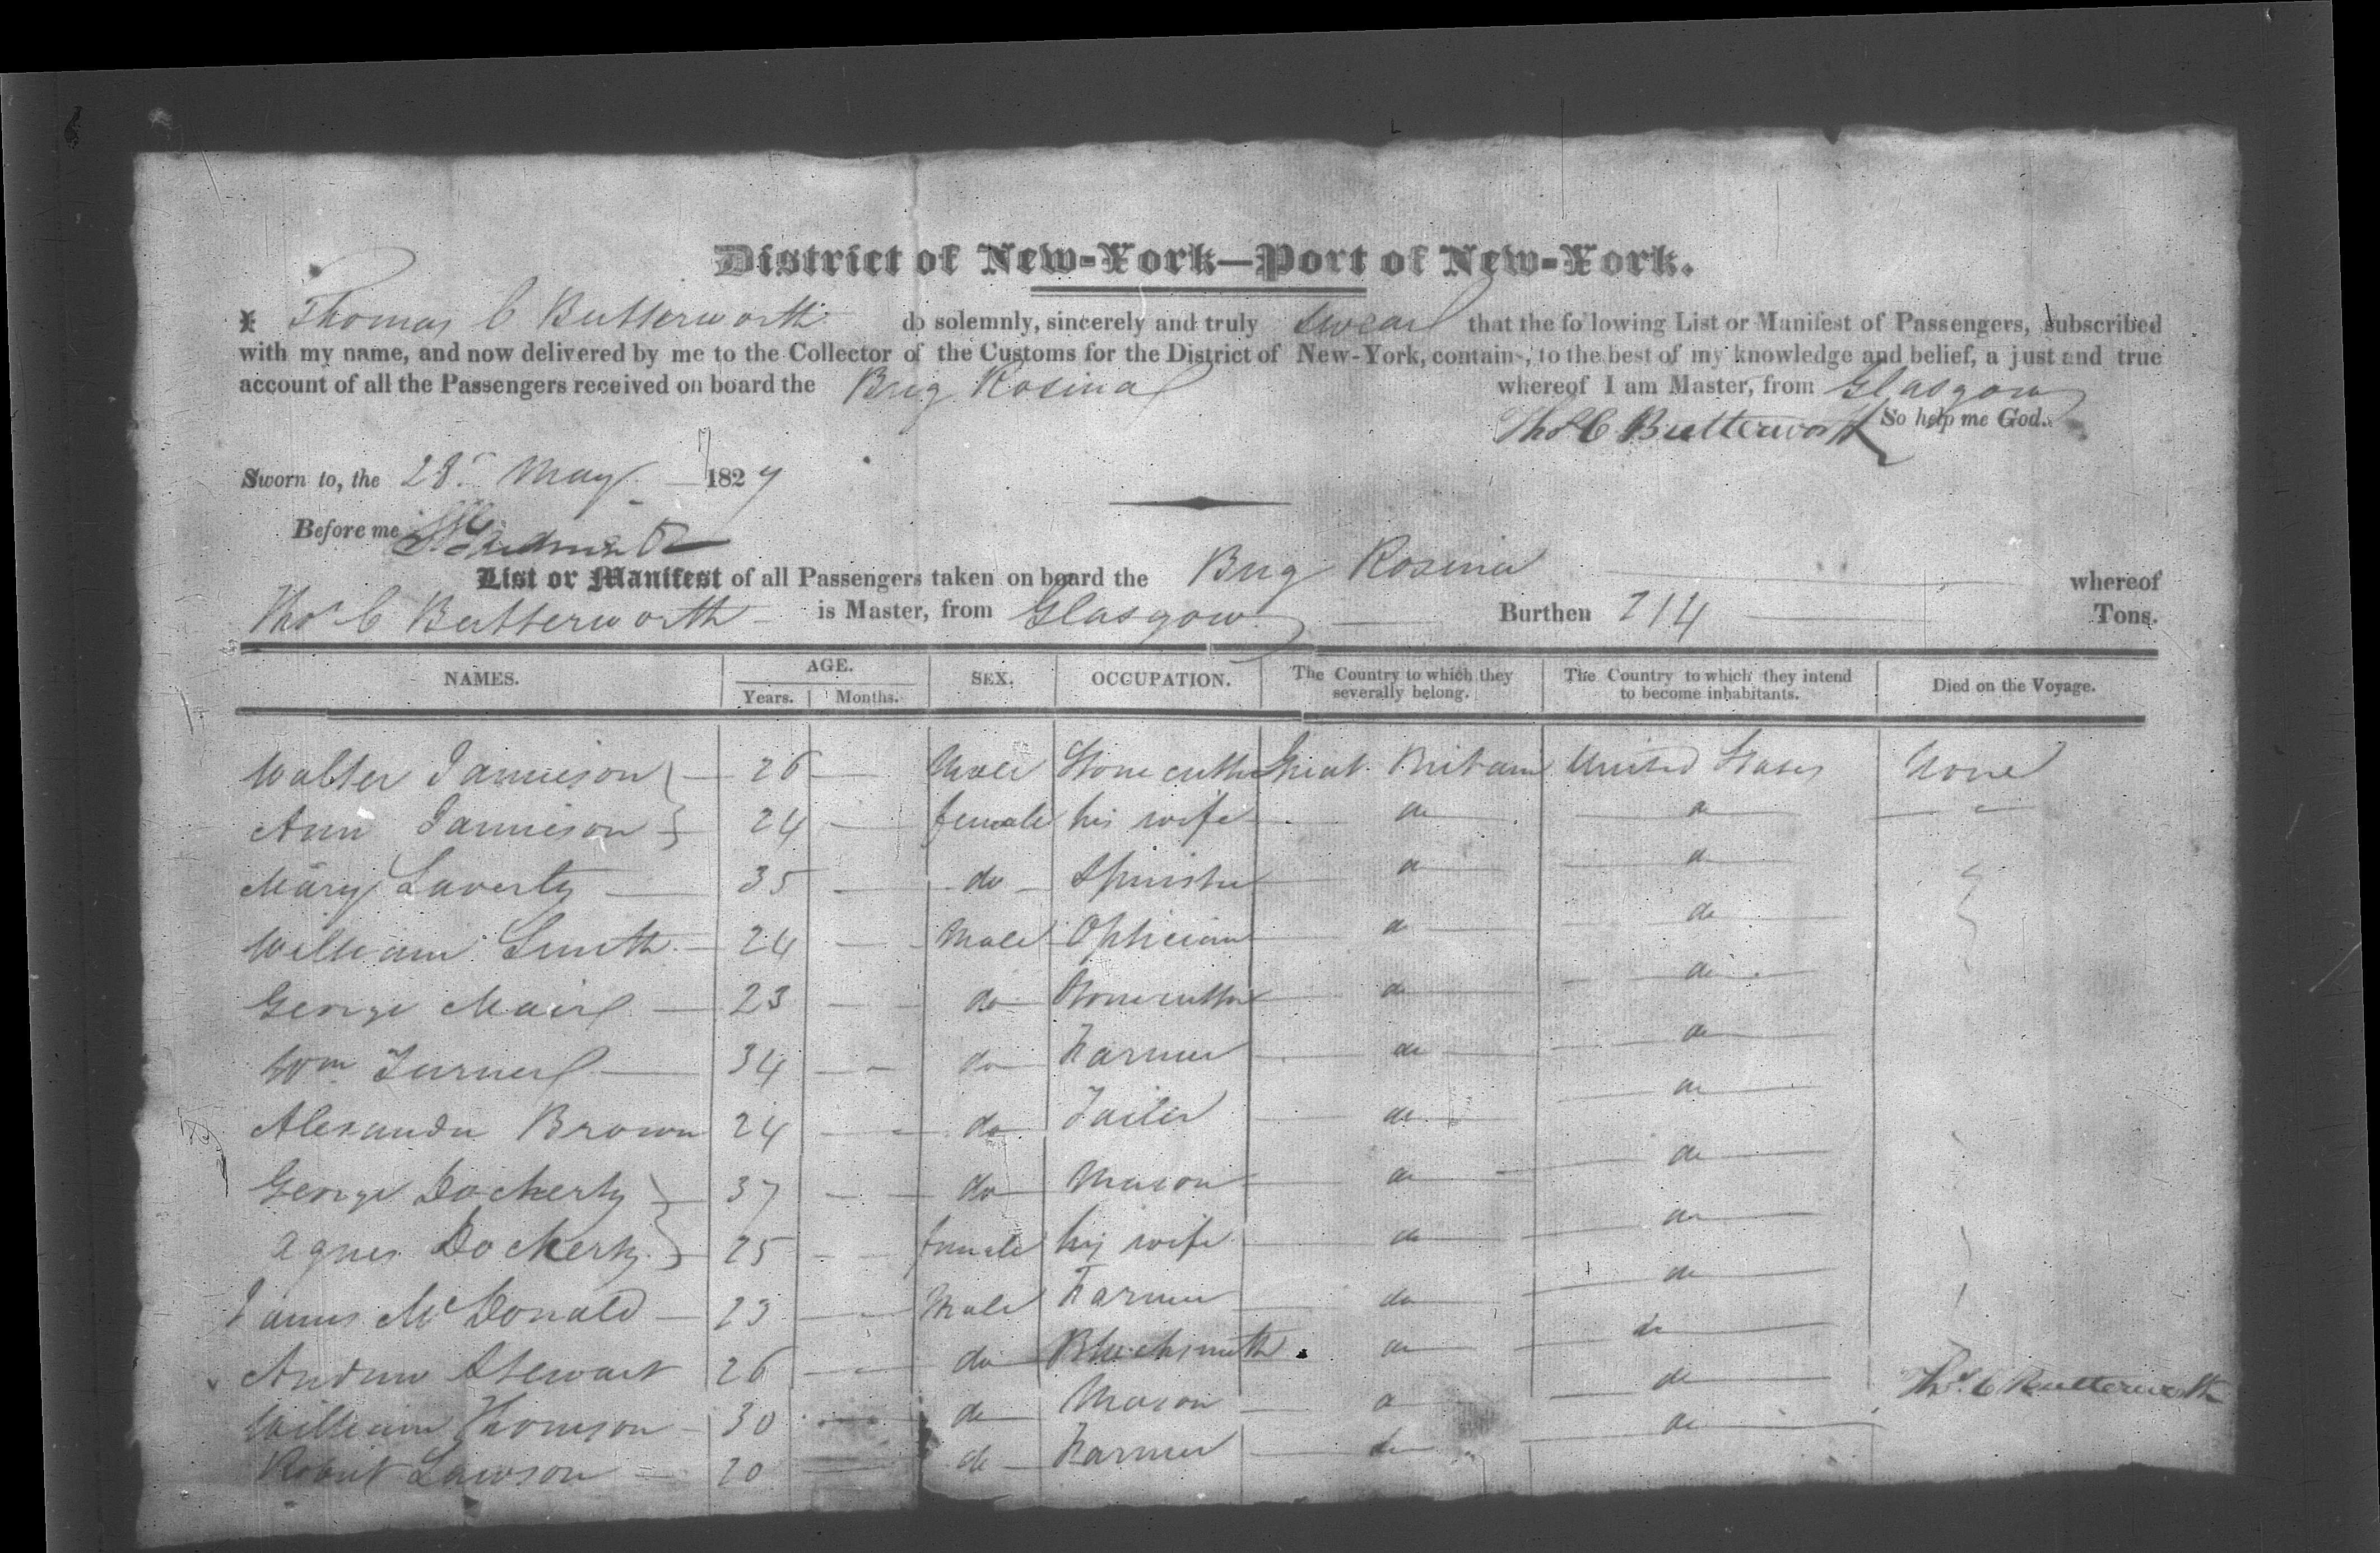 District of New-York—Port of New-York.
I Thomas C Butterworth do solemnly, sincerely and truly swear that the following List or Manifest of Passengers, subscribed
with my name, and now delivered by me to the Collector of the Customs for the District of New-York, contains, to the best of my knowledge and belief, a just and true
account of all the Passengers received on board the Brig Rosina whereof I am Master, from Glasgow
Thos C Butterworth So help me God.
Sworn to, the 28 May 1827
Before me
List or Manifest of all Passengers taken on board the Brig Rosina whereof
Thos C Butterworth is Master, from Glasgow Burthen 214 Tons.
NAMES. AGE. SEX. OCCUPATION. The Country to which they severally belong. The Country to which they intend to become inhabitants. Died on the Voyage.
Years. Months.
Walter Jamieson 26 Male Stone cutter Great Britain United States None
Ann Jamieson 24 female his wife do do
Mary Laverty 35 do Spinster do do
William Smith 24 Male Optician do do
George Mair 23 do Stonecutter do do
Wm Turner 34 do Farmer do do
Alexander Brown 24 do Tailer do do
George Dockerty 37 do Mason do do
Agnes Dockerty 25 female his wife do do
James McDonald 23 Male Farmer do do
Andrew Stewart 26 do Blacksmith do do
William Thomson 30 do Mason do do Thos C Butterworth
Robert Lawson 20 do Farmer do do